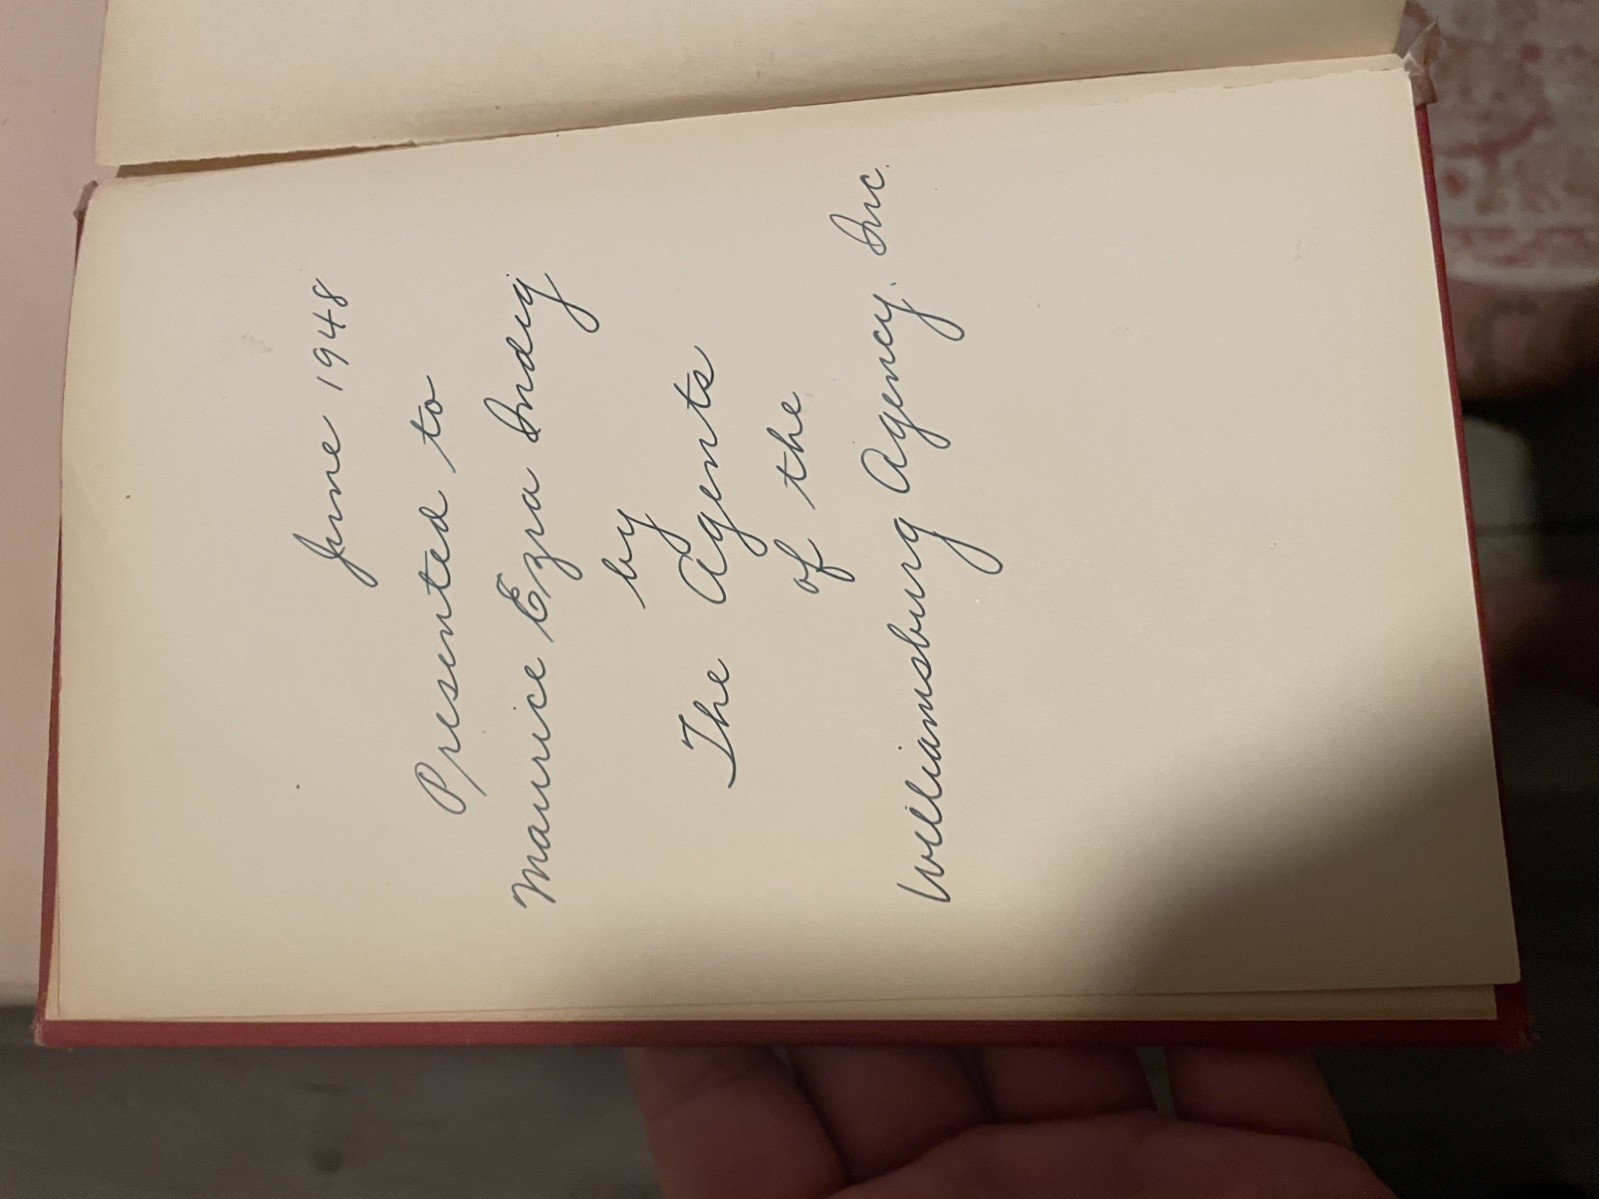 June 1948
Presented to
Maurice Ezra Indig
by
The Agents
of the
Williamsburg Agency. Inc.